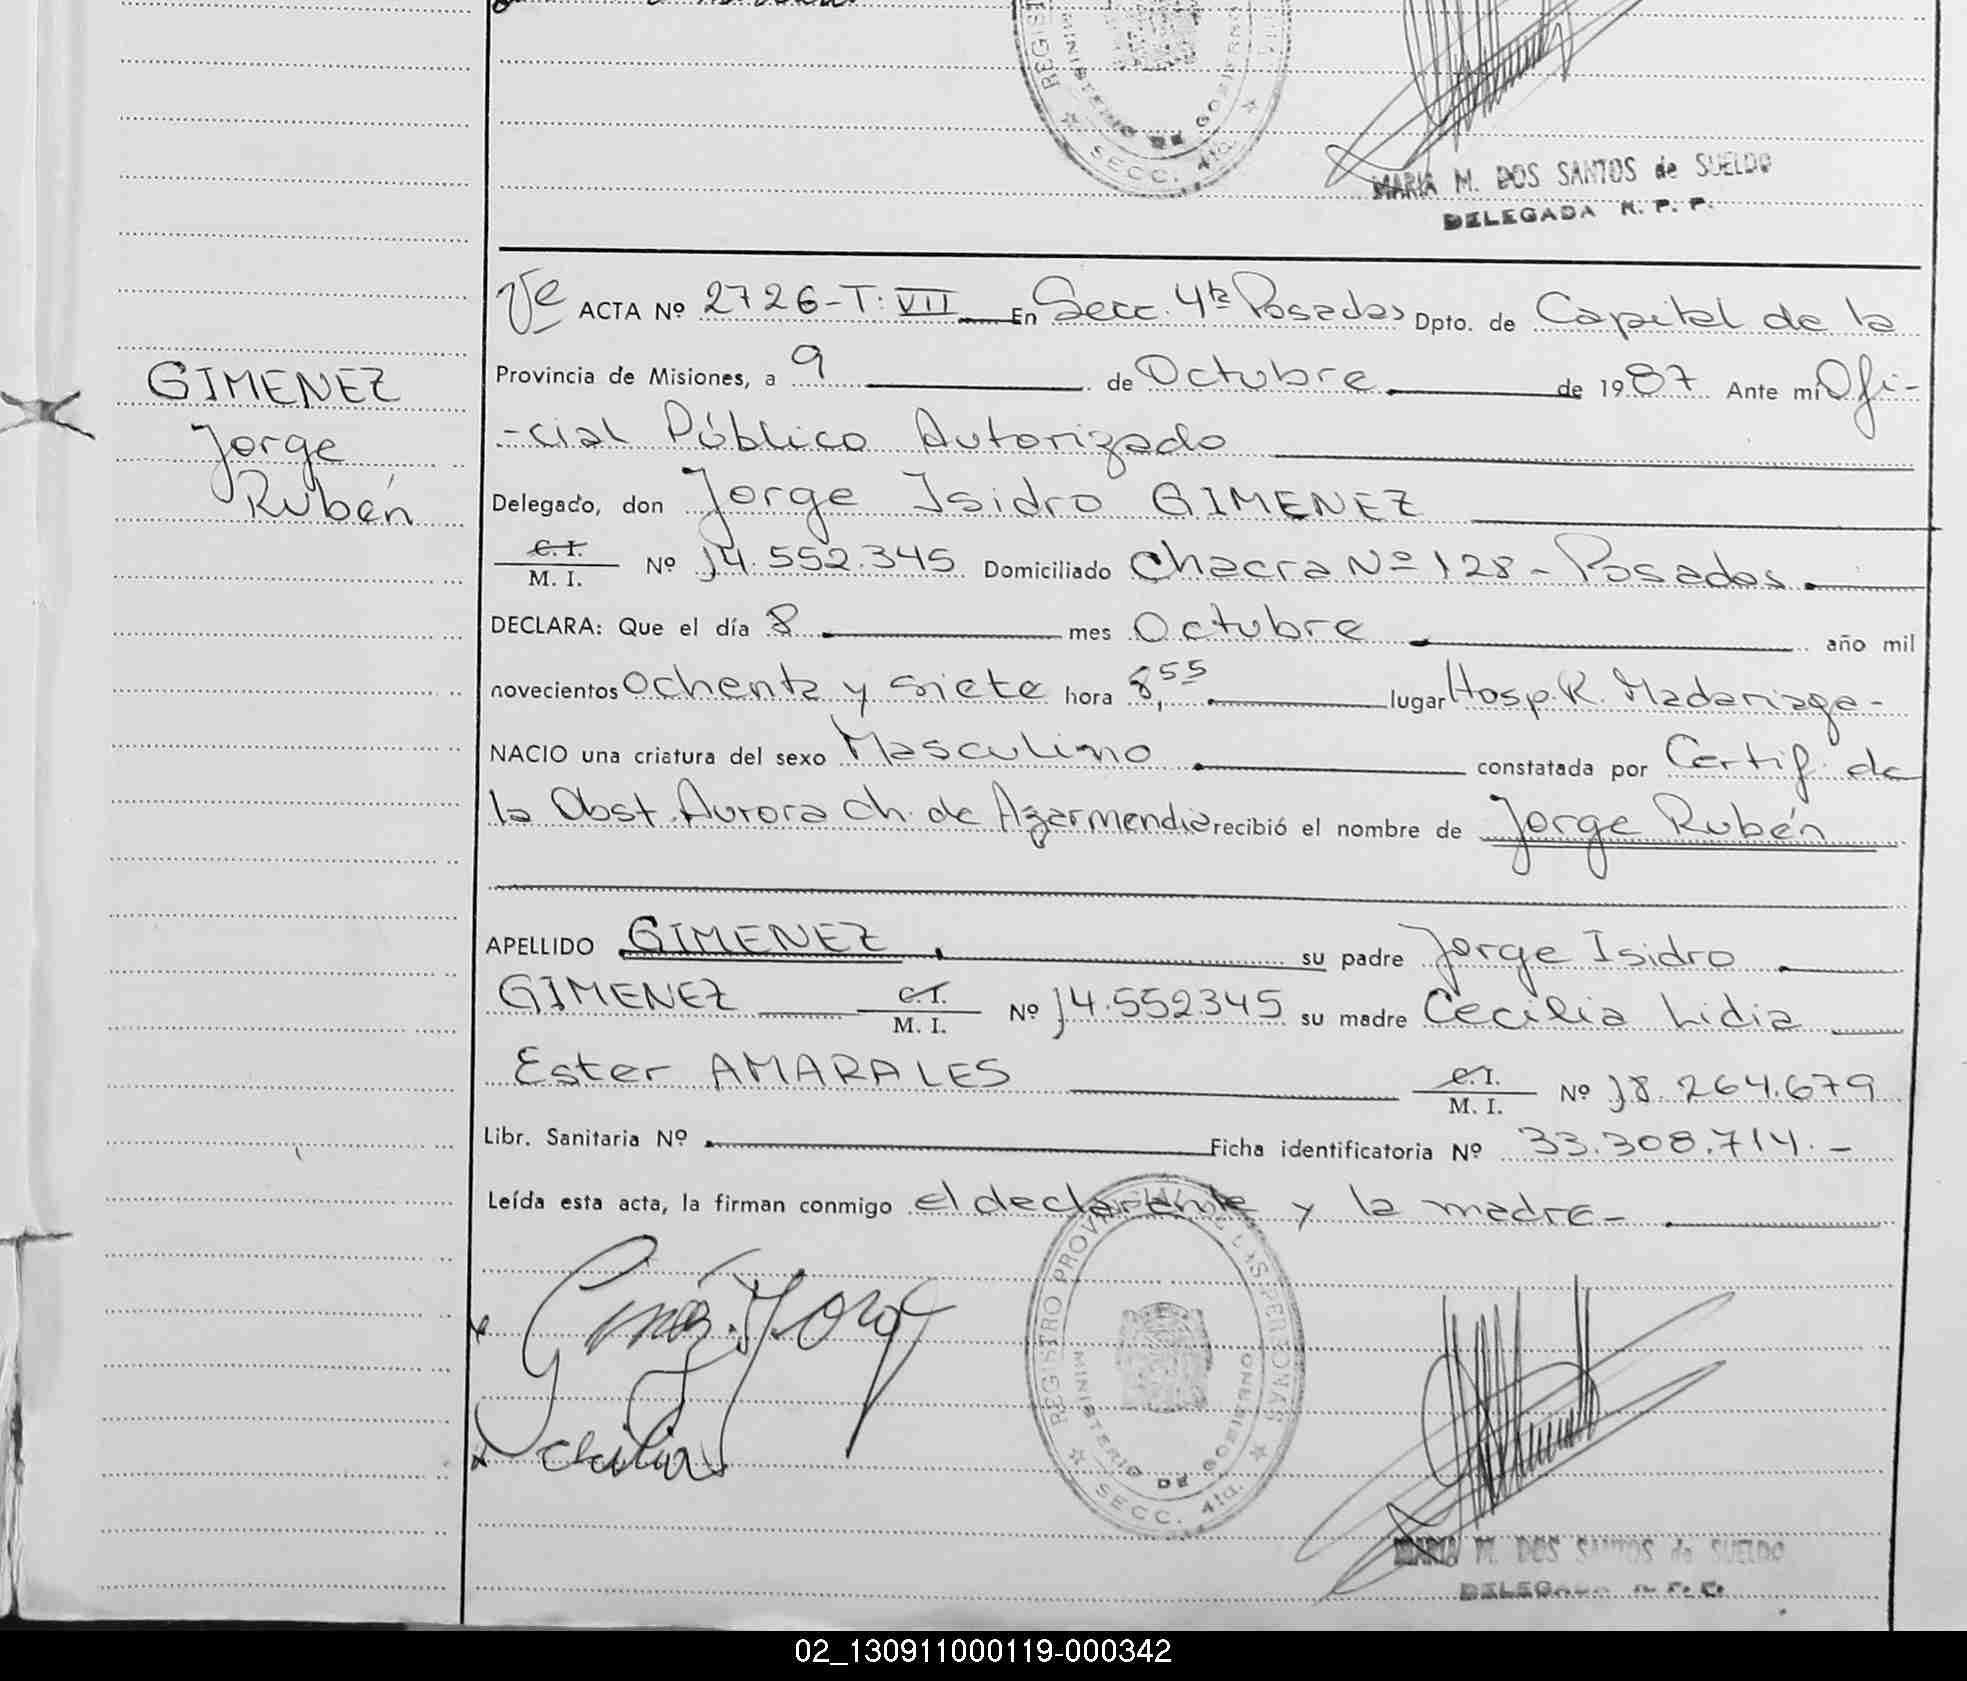 REGIST
MINISTERIO DE GOBIERNO
SECC. 4ta.
MARIA M. DOS SANTOS de SUELDO
DELEGADA R. P. P.
ACTA Nº 2726-T: VII En Secc. 4ta Posadas Dpto. de Capital de la
GIMENEZ
Jorge
Rubén
Provincia de Misiones, a 9 de Octubre de 1987 Ante mi Ofi-
-cial Público Autorizado
Delegado, don Jorge Isidro GIMENEZ
C. I.
M. I. Nº 14.552.345 Domiciliado Chacra Nº 128 - Posadas.
DECLARA: Que el día 8 mes Octubre año mil
novecientos ochenta y siete hora 8,55 lugar Hosp. R. Madariaga-
NACIO una criatura del sexo Masculino constatada por Certif. de
la Obst. Aurora Ch. de Azarmendia recibió el nombre de Jorge Rubén
APELLIDO GIMENEZ, su padre Jorge Isidro
GIMENEZ C. I. M. I. Nº 14.552345 su madre Cecilia Lidia
Ester AMARALES C. I. M. I. Nº 18.264.679
Libr. Sanitaria Nº Ficha identificatoria Nº 33.308.714.-
Leída esta acta, la firman conmigo el declarante y la madre-
REGISTRO PROVINCIAL DE LAS PERSONAS
MINISTERIO DE GOBIERNO
SECC. 4ta.
Cecilia
MARIA M. DOS SANTOS de SUELDO
DELEGADA R. P. P.
02_130911000119-000342